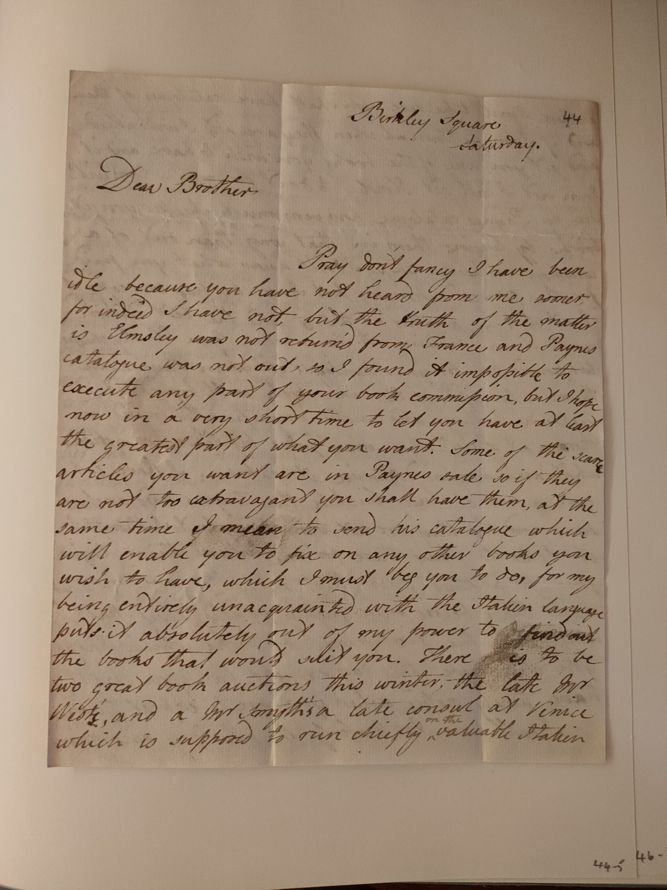 44
Birkley Square
Saturday.
Dear Brother
Pray don't fancy I have been
idle because you have not heard from me sooner
for indeed I have not, but the truth of the matter
is Elmsley was not returned from France and Paynes
catalogue was not out, so I found it impossible to
execute any part of your book commission, but I hope
now in a very short time to let you have at least
the greatest part of what you want. Some of the scarce
articles you want are in Paynes sale so if they
are not too extravagant you shall have them, at the
same time I mean to send his catalogue which
will enable you to fix on any other books you
wish to have, which I must beg you to do, for my
being entirely unacquainted with the Italien language
puts it absolutely out of my power to find out
the books that would suit you. There is to be
two great book auctions this winter, the late Mr
and a Mr Smyth's a late consul at Venice
which is supposed to run chiefly on the valuable Italien
44-5
46-